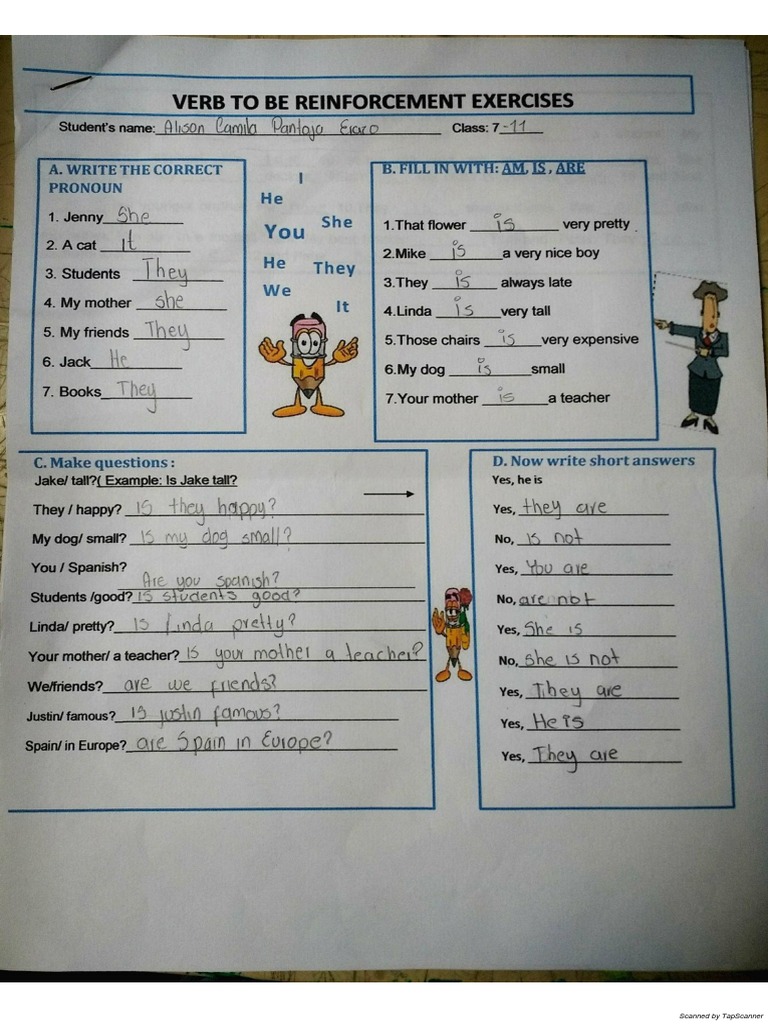 VERB TO BE REINFORCEMENT EXERCISES
Student's name: Alison Camila Pantoja Class: 7-11
A. WRITE THE CORRECT PRONOUN
1. Jenny She
2. A cat It
3. Students They
4. My mother she
5. My friends They
6. Jack He
7. Books They
I
He
She
You
He
They
We
It
B. FILL IN WITH: AM, IS , ARE
1.That flower is very pretty
2.Mike is a very nice boy
3.They is always late
4.Linda is very tall
5.Those chairs is very expensive
6.My dog is small
7.Your mother is a teacher
C. Make questions :
Jake/ tall?( Example: Is Jake tall?
They / happy? is they happy?
My dog/ small? is my dog small?
You / Spanish?
Are you spanish?
Students /good? is students good?
Linda/ pretty? is linda pretty?
Your mother/ a teacher? is your mother a teacher?
We/friends? are we friends?
Justin/ famous? is justin famous?
Spain/ in Europe? are Spain in Europe?
D. Now write short answers
Yes, he is
Yes, they are
No, is not
Yes, You are
No, are not
Yes, She is
No, she is not
Yes, They are
Yes, He is
Yes, They are
Scanned by TapScanner